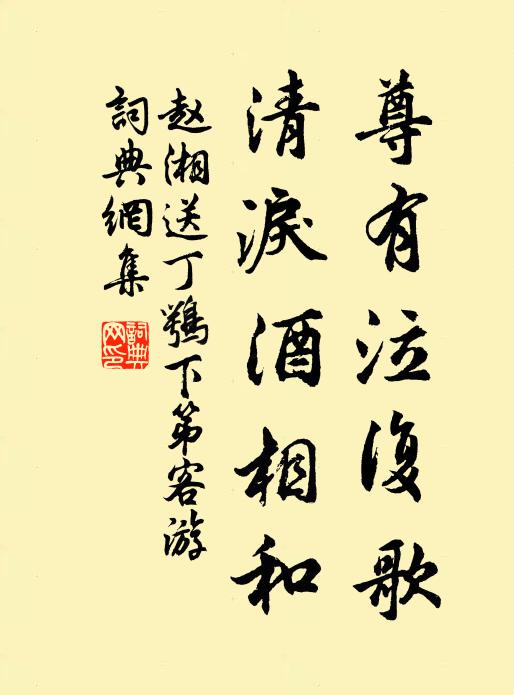 尊有泣復歌
清淚酒相和
赵湘送丁鶚下第客游
詞典網集
詞典網印